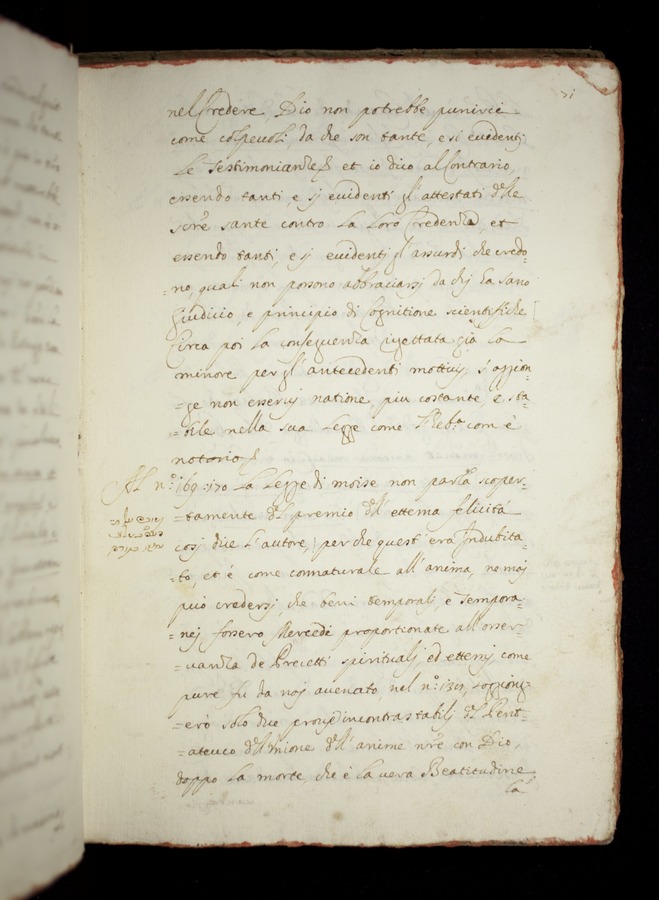 71
nel Credere Dio non potrebbe punirci
come colpevoli, da che son tante, e si evidenti
le Testimonianze et io dico al Contrario,
essendo tanti, e sj evidenti gl'attestati delle
scrre sante contro la loro Credenza, et
essendo tanti, e sj evidenti gl'assurdi che credo-
=no, quali non possono abbraciarsi da chi ha sano
Giudicio, e principio di Cognitione scientifiche
Circa poi la conseguenza rigettata già la
minore per gl'antecedenti mottivj, s'aggion-
=ge non esservj natione piu costante, e sta-
=bile nella sua Legge come l'Heb.ª com'è
notorio
Al nº: 169:170 La Legge di moise non parla scoper-
=tamente del premio dell'etterna felicità
cosj dice l'autore, perche quest'era Indubita-
=to, et è come connaturale all'anima, ne maj
può credersi, che beni temporalj, e Tempora-
=nej fossero Mercede proportionate all'osser-
=vanza de Precetti spiritualj ed etternj come
pure fu da noj avencato, nel nº: 131, soggiong-
=erò solo due prove incontrastabilj del Pent-
=ateuco dell'Unione dell'anime nre con Dio,
doppo la morte, che è la vera Beatitudine
la